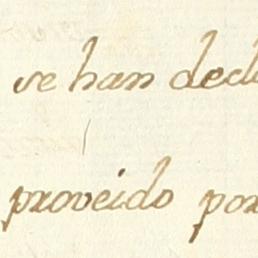 se han dedi
proveido por